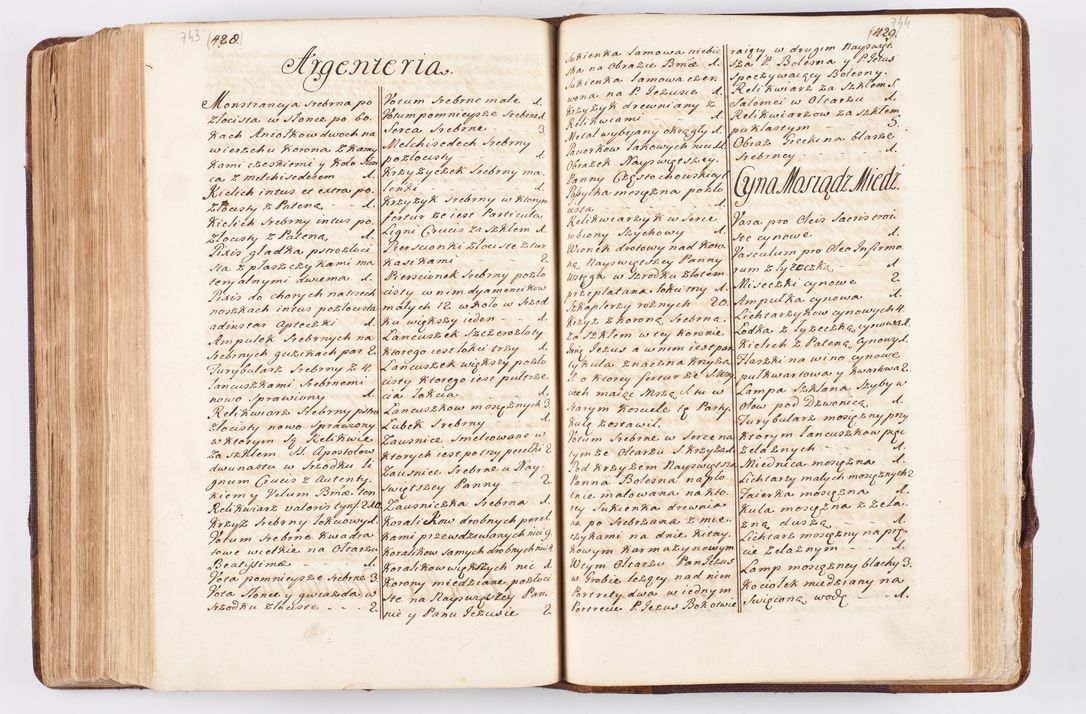 743 (428.)
Argenteria.
Monstrancya Srebrna po
złocista w słonce po bo.
kach Aniołkow dwoch na
wierzchu Korona z kamy
kami czeskiemi y koło słon
ca z Melchisedem 1.
Kielich intus et extra po.
złocisty z Pateną 1.
Kielich Srebrny intus po.
złocisty z Pateną 1.
Pixis gładka
sta z płaszczykami ma
teryalnymi dwiema 1.
Pixis do chorych na trzech
noszkach intus pozłocista
adinstar Apteczki 1.
Ampułek Srebrnych na
Srebrnych guzikach par 2.
Turybularz Srebrny z 4.
łancuszkami Srebrnemi
nowo sprawiony 1.
Relikwiarz Srebrny
złocisty nowo sprawiony
w ktorym Są Relikwie
za szkłem SS. Apostołow
dwunastu w Srzodku Li
gnum Crucis z Autenty.
kiem y Velum Bmæ
Relikwiarz valoris tynf 210.
Krzyz Srebrny łokciowy 1.
Votum Srebrne kwadra
towe wielkie na Ołtarzu
Beatissimæ 1.
Vota pomnieysze Srebrne 3.
Vota Słonce y gwiazda w
Srzodku złociste 2.
Votum Srebrne małe 1.
Votum pomnieysze Srebrne 1.
Serca Srebrne 3
Melchisedech Srebrny
pozłocisty 1.
Krzyzyczek Srebrny ma
lenki 1.
Krzyzyk Srebrny w ktorym
fertur ze iest Particula
Ligni Crucis za szkłem 1.
Pierscionki złociste z tur
kusikami 2.
Pierscionek Srebrny pozło
cisty w nim dyamencikow
małych 12 w koło w Srzod
ku większy ieden 1.
Łancuszek Szczerozłoty
ktorego iest łokci trzy 1.
Łancuszek większy pozło
cisty ktorego iest pułtrze.
cia łokcia 1.
Łancuszkow mosięznych 3.
Lubek Srebrny 1.
Zausnice Smelcowane w
ktorych iest po trzy perełki 2
Zausnice Srebrne u Nay-
swiętszey Panny 2.
Zausniczka Srebrna 1.
Koralikow drobnych pereł
kami przewdziewanych nici 9.
Koralikow samych drobnych nic 4.
Koralikow większych nic 1.
Korony miedziane pozłoci
ste na Nayswiętszey Pan.
nie y Panu Jezusie 2.
(429. 744
Sukienka lamowa niebie
ska na Obrazie Bmæ 1.
Sukienka lamowa czer
wona na P. Jezusie 1.
Krzyzyk drewniany z
Relikwiami 1.
Metal wybiiany okrągły 1.
Paciorkow lakowych nici 1.
Obrazek Nayswiętszey.
Panny Częstochowskiey
Tabliczka mosięzna pozło
cista 1.
Relikwiarzyk w Serce
robiony Szychowy 1.
Wionek drotowy nad Koro.
ną Nayswiętszey Panny
Wstęga w Srzodku złotem
przeplatana łokci trzy 1.
Szkaplerzy roznych 20.
Krzyz z Koroną Srebrną
za szkłem w tey Koronie
Imię Jezus a w nim iest par
tykuła znaczna Krzyza
S. o ktorey fertur ze S. Woy
ciech maiąc Mszą S. tu w
starym Kosciele tę Party.
kułę zostawił.
Votum Srebrne w Serce na
tymze Ołtarzu S. Krzyza 1.
Pod Krzyzem Nayswiętsza
Panna Bolesna na pło
tnie malowana na kto.
rey Sukienka drewnia
na po Srebrzana z mie.
czykami na dnie kitay.
kowym karmazynowym
W tym Ołtarzu Pan Jezus
w Grobie lezący nad nim
Portrety dwa w iednym
Portrecie P. Jezus Bokotwie
raiący w drugim Nayswięt
sza P. Bolesna y P. Jezus
Spoczywaiący Bolesny.
Relikwiarz za szkłem S.
Salomei w Ołtarzu 1.
Relikwiarzow za szkłem
puklastym 5.
Obraz Grecki na blasze
Srebrney 1.
Cyna Mosiądz Miedź.
Vasa pro Oleis Sacris troi
ste cynowe 1.
Vasculum pro Oleo Infirmo
rum z łyzeczką 1.
Miseczki cynowe 2.
Ampułka cynowa 1.
Lichtarzykow cynowych 4.
Łodka z łyzeczką cynową 1.
Kielich z Pateną cynowy 1.
Flaszki na wino cynowe
pułkwartowa y kwartowa 2.
Lampa Szklana Szyby w
ołow pod Dzwonicą 1.
Turybularz mosięzny przy
ktorym łancuszkow pięc
zelaznych 1.
Miednica mosięzna 1.
Lichtarzy małych mosięznych 2
Faierka mosięzna 1.
Kula mosięzna z zela.
zną duszą 1.
Lichtarz mosięzny na prę
cie zelaznym 1.
Lamp mosięzney blachy 3.
Kociołek miedziany na
Swięconą wodę 1.